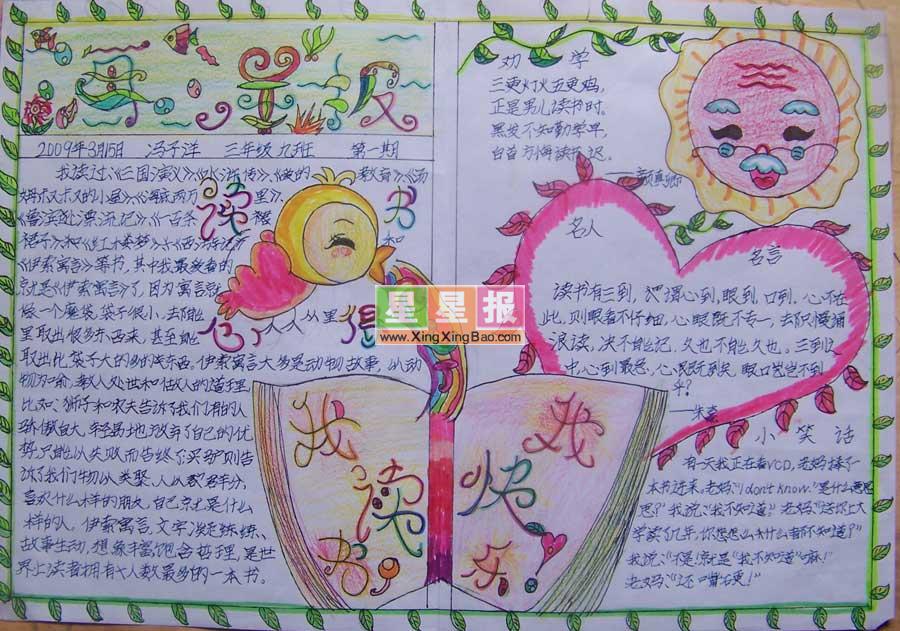 寻章报
2009年3月15日 冯子洋 三年级九班 第一期
我读过《三国演义》《水浒传》
《伊索寓言》等书,其中我最爱看的
就是《伊索寓言》了,因为寓言就
像一个魔袋,袋子很小,
里取出很多东西来,甚至能
取出比袋子大的多的东西。伊索寓言大多是动物故事,以动
物为喻,教人处世和做人的道理
比如:狮子和农夫告诉了我们有的人
骄傲自大,轻易地放弃了自己的优
势,只能以失败而告终了,买驴则告
诉了我们物以类聚,人以群分,
喜欢什么样的朋友,自己
样的人。伊索寓言,文字凝练,
故事生动,想象丰富,饱含哲理,是世
界上读者拥有
人数最多的一本书。
读书
我读书
我快乐
劝学
三更灯火五更鸡,
正是男儿读书时。
黑发不知勤学早,
白首方悔读书迟。
——颜真卿
名人
名言
读书有三到,谓心到,眼到,口到。心不在
此,则眼看不仔细,心眼既不专一,
浪读,决不能记,久也不能久也。三到之
中,心到最急,心既到矣,眼口岂不到
乎?
——朱熹
小笑话
有一天我正在看VCD,老妈捧了一
本书进来,老妈:“I don't know.”是什么意思
我说:“我不知道”老妈:“送你上大
学读了几年,你怎么什么都不知道?”
我说:“不是!就是“我不知道”嘛!”
老妈:“还嘴硬!”
星星报
www.XingXingBao.com